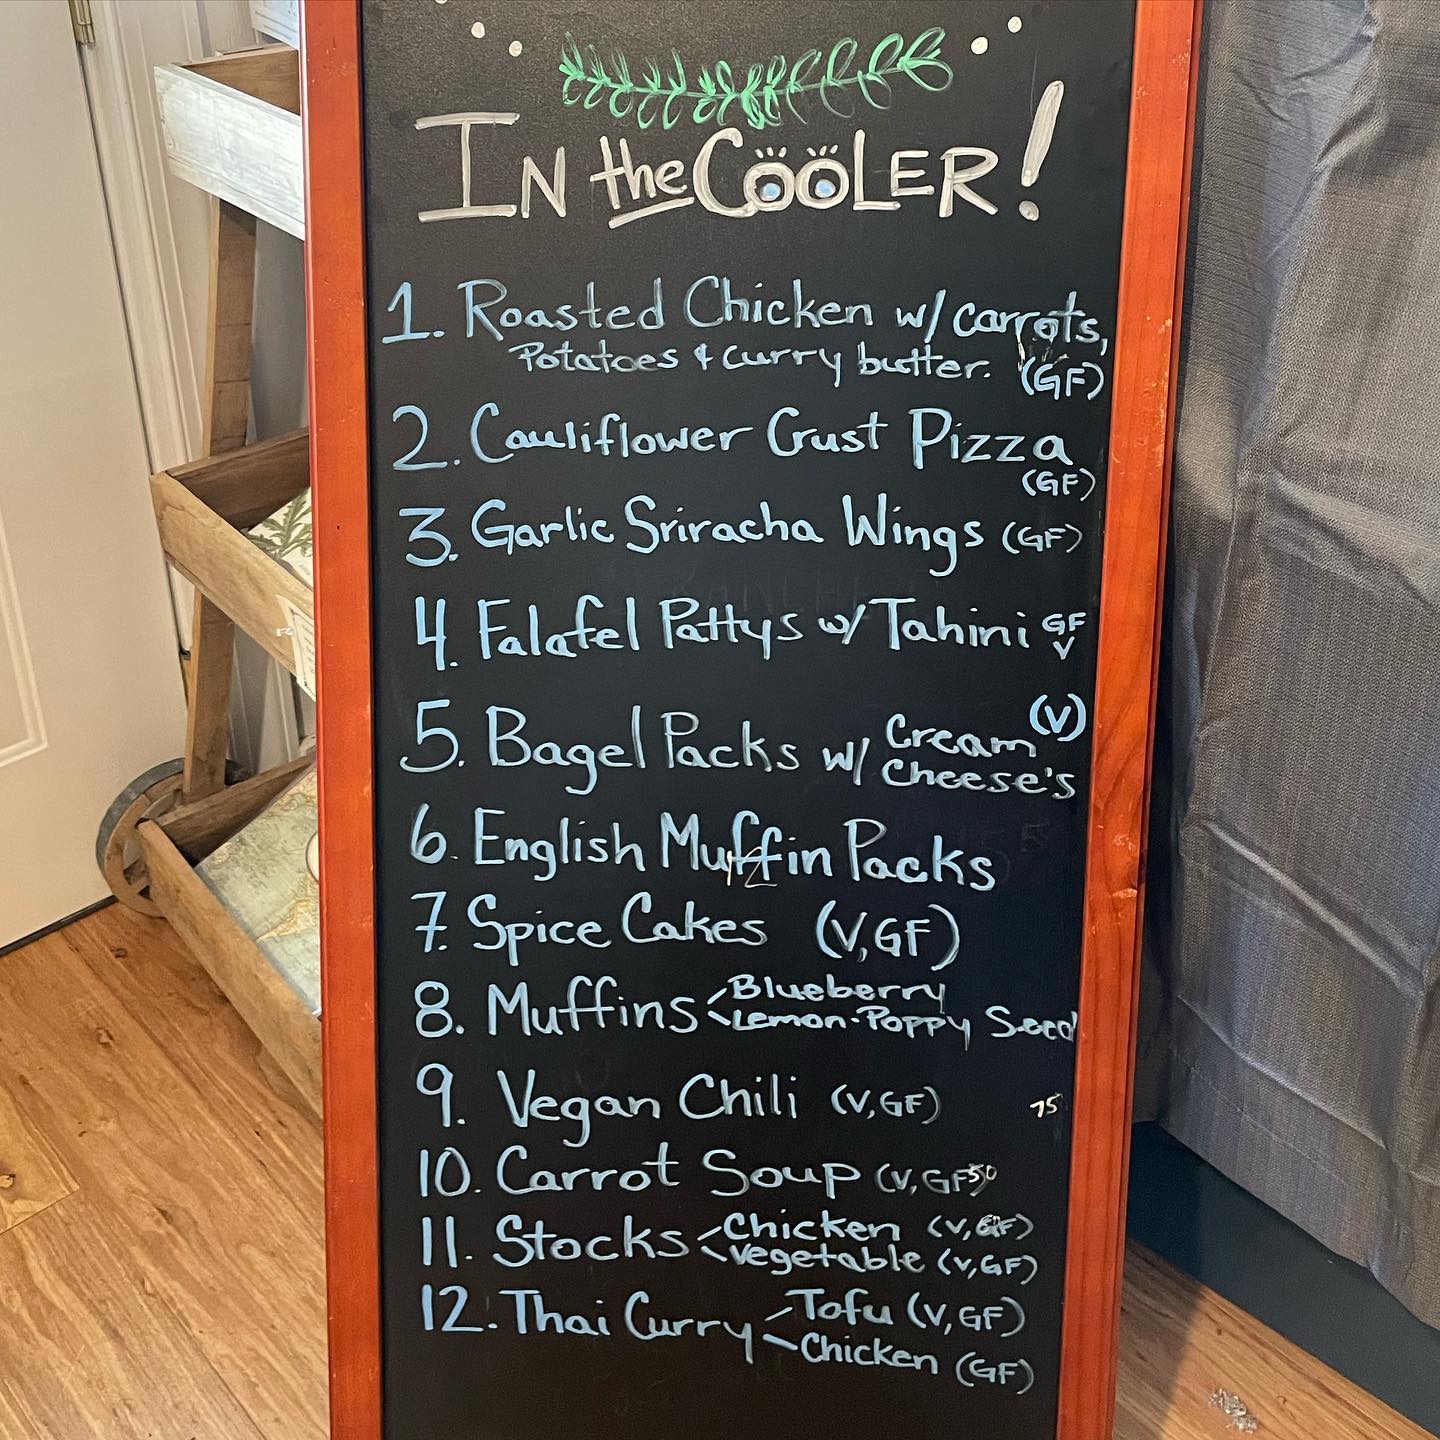 In the Cooler!
1. Roasted Chicken w/ carrots,
Potatoes & curry butter. (GF)
2. Cauliflower Crust Pizza
(GF)
3. Garlic Sriracha Wings (GF)
4. Falafel Pattys w/ Tahini GF
V
5. Bagel Packs w/ Cream (V)
Cheese's
6. English Muffin Packs
7. Spice Cakes (V,GF)
8. Muffins Blueberry
Lemon-Poppy Seed
9. Vegan Chili (V,GF) 75
10. Carrot Soup (V,GF) 50
11. Stocks Chicken (V,GF)
Vegetable (V,GF)
12. Thai Curry Tofu (V,GF)
Chicken (GF)